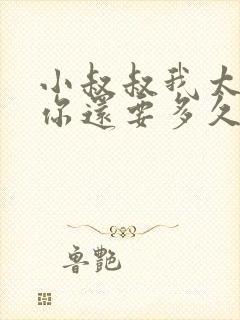 小叔叔我大
你還要多久
魯艷